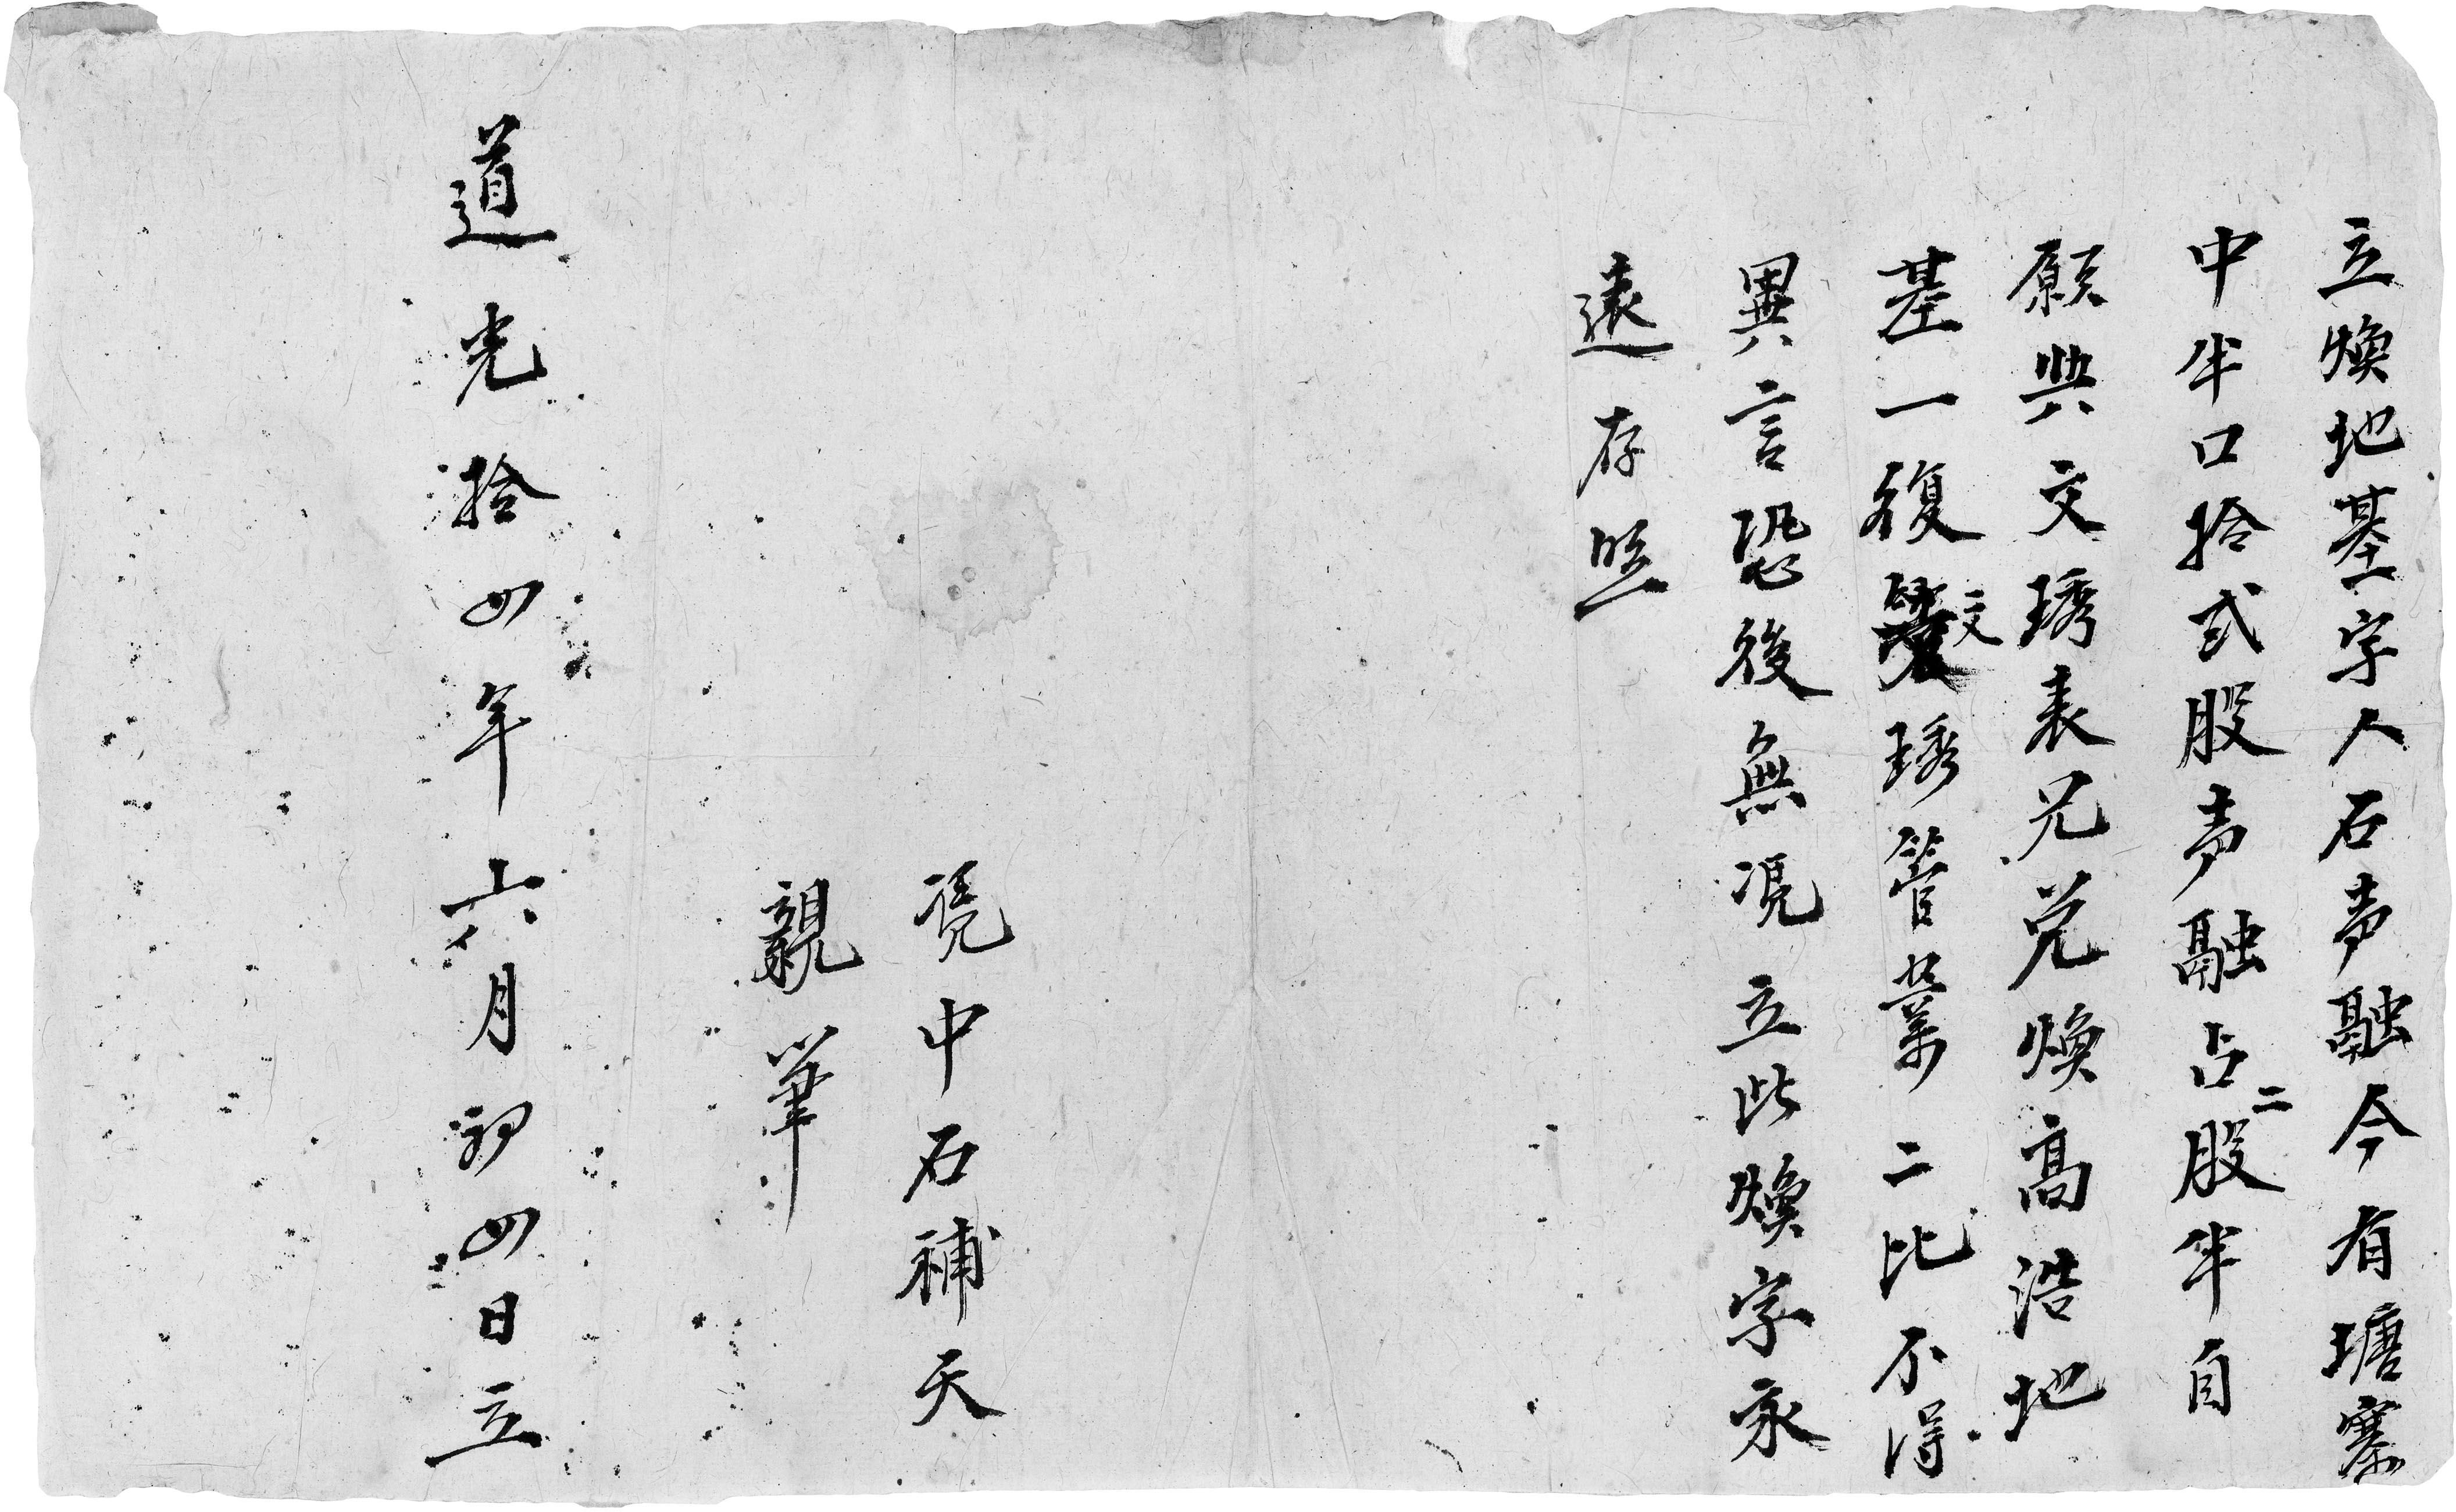 立煥地基字人石声融今有塘寨
中半口拾弍股声融占二股半自
願與文琇表兄兑煥高浩地
基一復文琇管業二比不得
異言恐後無凴立此煥字永
遠存照
凴中石補天
親筆
道光拾四年六月初四日立